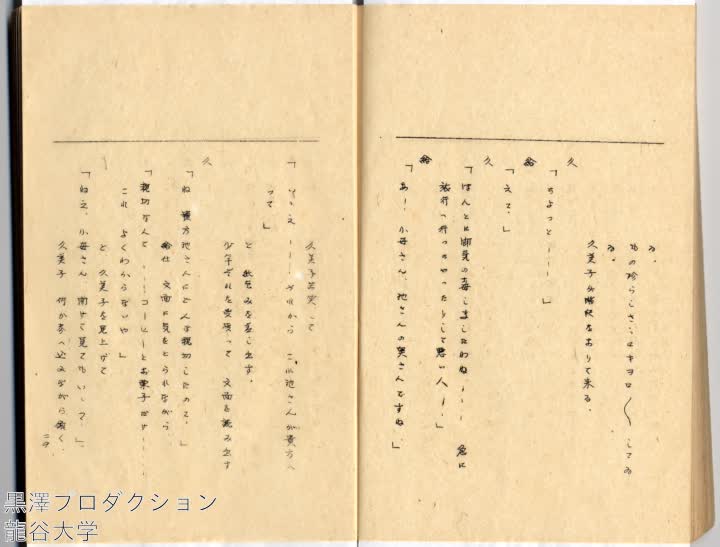 る。
もの珍らしさうにキヨロ〱してゐ
る。
久美子が階段をおりて来る。
久
「ちよつと———」
給
「えゝ。」
久
「ほんとに御気の毒しましたわね——— 急に
旅行へ行つちやつたりして悪い人——」
給
「あー、小母さん、池さんの奥さんですね。」
久美子苦笑して
「いゝえ——— それから これ池さんが貴方へ
って」
と 包みを差し出す。
少年それを受取って 文面を読み出す
久
「ね 貴方池さんにどんな親切したのて。」
給仕 文面に見をとられながら
「親切なんて ———コーヒーとお菓子だけ———
これ よくわからないや」
と 久美子を見上げて
「ねえ、小母さん 開けて見てもいゝで。」
久美子 何か考へ込みながら頷く。
黒澤プロダクション
龍谷大学